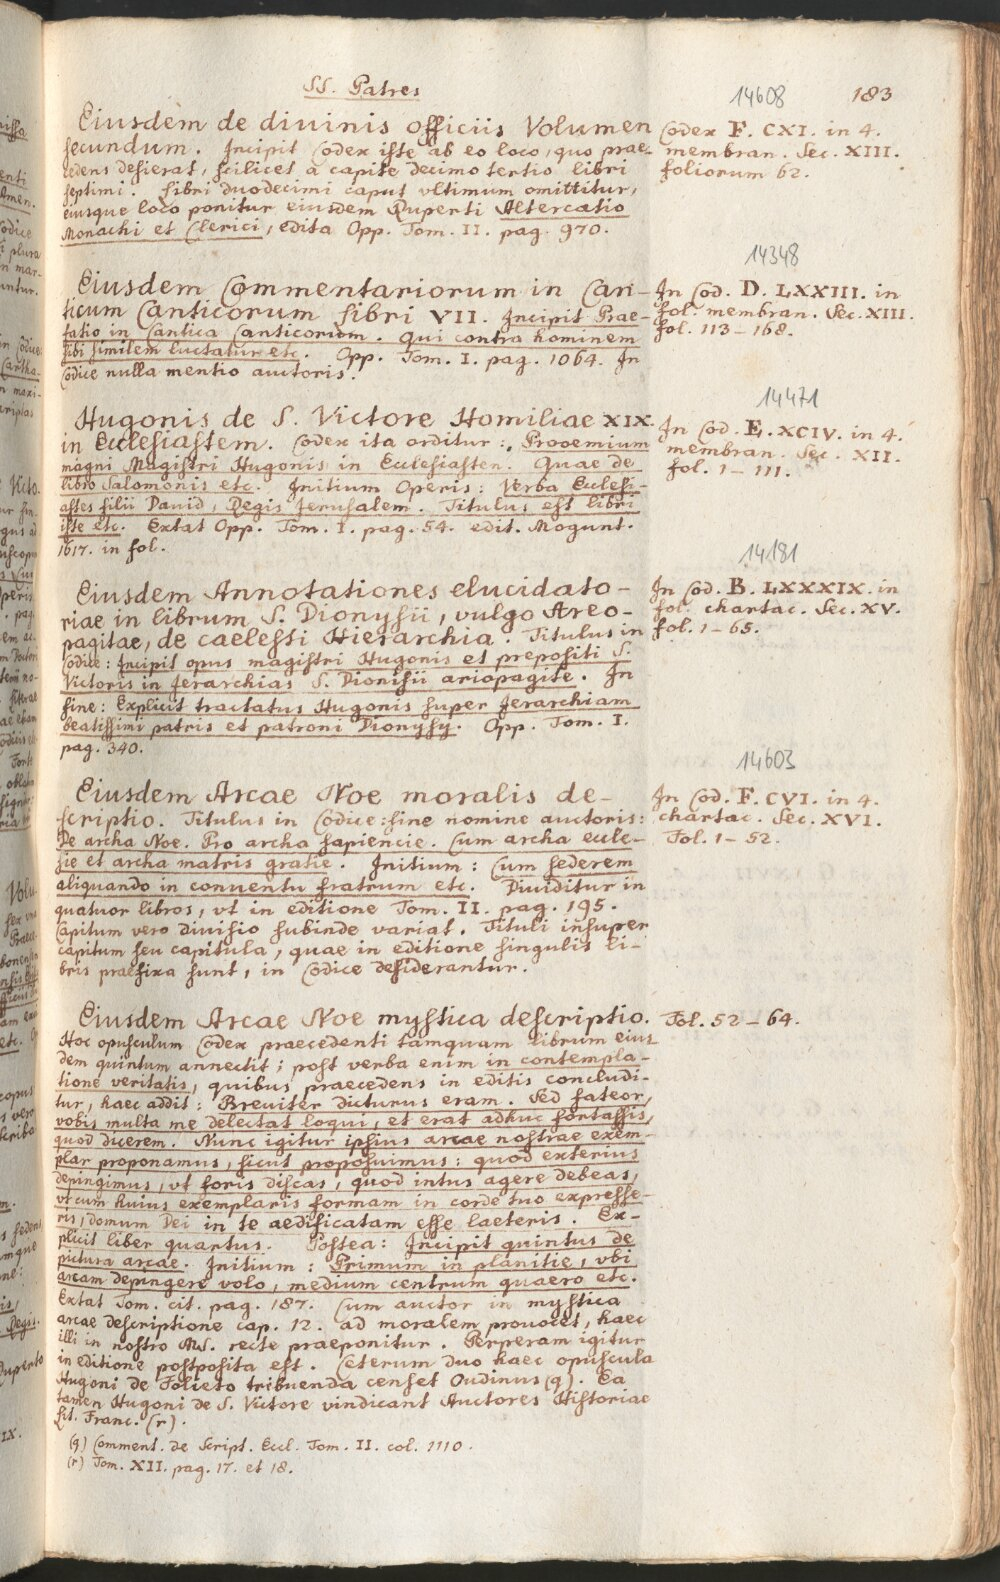 SS. Patres
14608
183
Eiusdem de diuinis officiis Volumen
secundum. Incipit Codex iste ab eo loco, quo prae-
cedens desierat, scilicet a capite decimo tertio libri
septimi. Libri duodecimi caput vltimum omittitur,
eiusque loco ponitur eiusdem Ruperti Altercatio
Monachi et Clerici, edita Opp. Tom. II. pag. 970.
Codex F. CXI. in 4.
membran. Sec. XIII.
foliorum 62.
14348
Eiusdem Commentariorum in Can-
ticum Canticorum Libri VII. Incipit Prae-
fatio in Cantica Canticorum. Qui contra hominem
sibi similem luctatur etc. Opp. Tom. I. pag. 1064. In
Codice nulla mentio auctoris.
In Cod. D. LXXIII. in
fol. membran. Sec. XIII.
fol. 113 - 168.
14471
Hugonis de S. Victore Homiliae XIX.
in Ecclesiastem. Codex ita orditur: Prooemium
magni Magistri Hugonis in Ecclesiasten. Quae de
libro Salomonis etc. Initium Operis: Verba Ecclesi-
astes filii Dauid, Regis Jerusalem. Titulus est libri
iste etc. Extat Opp. Tom. I. pag. 54. edit. Mogunt.
1617. in fol.
In Cod. E. XCIV. in 4.
membran. Sec. XII.
fol. 1 - 111.
14181
Eiusdem Annotationes elucidato-
riae in librum S. Dionysii, vulgo Areo-
pagitae, de caelesti Hierarchia. Titulus in
Codice: Incipit opus magistri Hugonis et prepositi S.
Victoris in Jerarchias S. Dionisii ariopagite. In
fine: Explicit tractatus Hugonis super Jerarchiam
beatissimi patris et patroni Dionysy. Opp. Tom. I.
pag. 340.
In Cod. B. LXXXIX. in
fol. chartac. Sec. XV.
fol. 1 - 65.
14603
Eiusdem Arcae Noe moralis de-
scriptio. Titulus in Codice: sine nomine auctoris:
De archa Noe. Pro archa sapiencie. Cum archa eccle-
sie et archa matris gratie. Initium: Cum sederem
aliquando in conuentu fratrum etc. Diuiditur in
quatuor libros, vt in editione Tom. II. pag. 195.
Capitum vero diuisio subinde variat. Tituli insuper
capitum seu capitula, quae in editione singulis li-
bris praefixa sunt, in Codice desiderantur.
In Cod. F. CVI. in 4.
chartac. Sec. XVI.
Fol. 1 - 52.
Eiusdem Arcae Noe mystica descriptio.
Fol. 52 - 64.
Hoc opusculum Codex praecedenti tamquam librum eius-
dem quintum annectit; post verba enim in contempla-
tione veritatis, quibus praecedens in editis concludi-
tur, haec addit: Breuiter dicturus eram. Sed fateor,
vobis multa me delectat loqui, et erat adhuc fortassis,
quod dicerem. Nunc igitur ipsius arcae nostrae exem-
plar proponamus, sicut proposuimus: quod exterius
depingimus, vt foris discas, quod intus agere debeas,
vt cum huius exemplaris formam in corde tuo expresse-
ris, domum Dei in te aedificatam esse laeteris. Ex-
plicit liber quartus. Postea: Incipit quintus de
pictura arcae. Initium: Primum in planitie, vbi
arcam depingere volo, medium centrum quaero etc.
Extat Tom. cit. pag. 187. Cum auctor in mystica
arcae descriptione cap. 12. ad moralem prouocet, haec
illi in nostro MS. recte praeponitur. Perperam igitur
in editione postposita est. Ceterum duo haec opuscula
Hugoni de Folieto tribuenda censet Oudinus (q). Ea
tamen Hugoni de S. Victore vindicant Auctores Historiae
lit. Franc. (r).
(q) Comment. de Script. Eccl. Tom. II. col. 1110.
(r) Tom. XII. pag. 17. et 18.